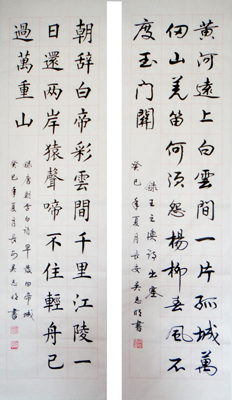 黃河遠上白雲間一片孤城萬
仞山羌笛何須怨楊柳春風不
度玉門關
錄王之渙詩出塞
癸巳年夏月長安吳志明書
朝辭白帝彩雲間千里江陵一
日還兩岸猿聲啼不住輕舟已
過萬重山
錄唐李白詩早發白帝城
癸巳年夏月長安吳志明書